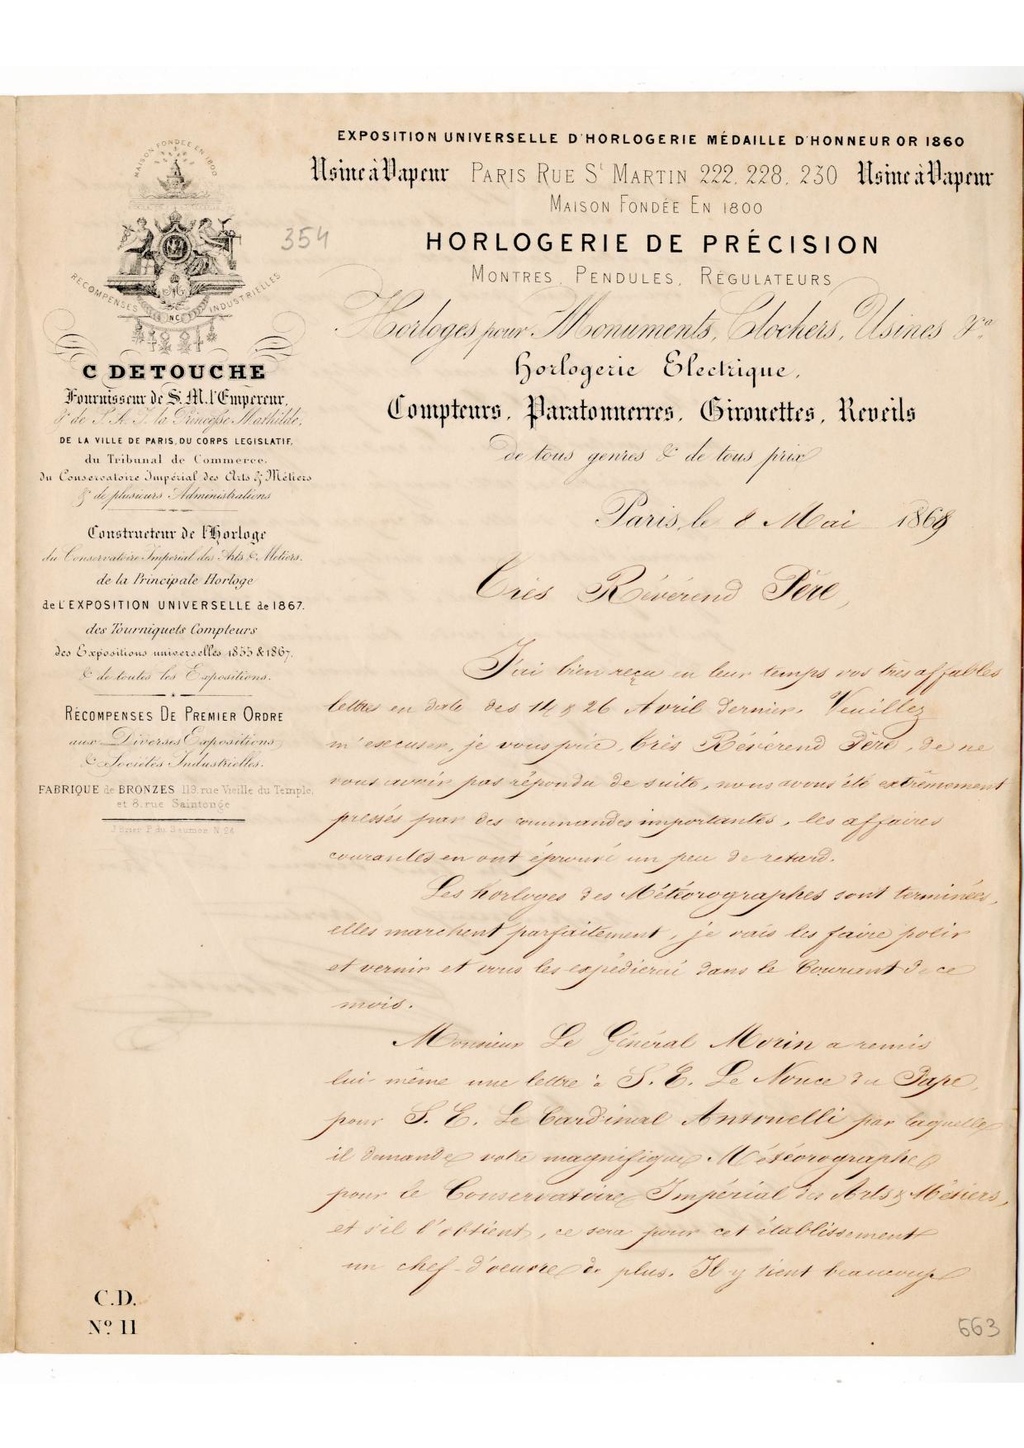 EXPOSITION UNIVERSELLE D'HORLOGERIE MÉDAILLE D'HONNEUR OR 1860
Usine à Vapeur PARIS RUE St MARTIN 222, 228, 230 Usine à Vapeur
MAISON FONDÉE EN 1800
HORLOGERIE DE PRÉCISION
MONTRES, PENDULES, RÉGULATEURS
Horloges pour Monuments, Clochers, Usines &ca
Horlogerie Electrique,
Compteurs, Paratonnerres, Girouettes, Reveils
de tous genres & de tous prix
354
MAISON FONDÉE EN 1800
RÉCOMPENSES INDUSTRIELLES
C DETOUCHE
Fournisseur de S. M. l'Empereur,
& de S. A. I. la Princesse Mathilde,
DE LA VILLE DE PARIS, DU CORPS LEGISLATIF,
du Tribunal de Commerce,
du Conservatoire Impérial des Arts & Métiers
& de plusieurs Administrations
Constructeur de l'Horloge
du Conservatoire Impérial des Arts & Métiers,
de la Principale Horloge
de L'EXPOSITION UNIVERSELLE de 1867.
des Tourniquets Compteurs
des Expositions universelles 1855 & 1867,
& de toutes les Expositions.
RÉCOMPENSES DE PREMIER ORDRE
aux Diverses Expositions
& Sociétés Industrielles.
FABRIQUE de BRONZES 113, rue Vieille du Temple,
et 8, rue Saintonge
Paris, le 8 Mai 1869
Très Révérend Père,
J'ai bien reçu en leur temps vos très affables
lettres en date des 14 & 26 Avril dernier. Veuillez
m'excuser, je vous prie, très Révérend Père, de ne
vous avoir pas répondu de suite, nous avons été extrêmement
pressés par des commandes importantes, les affaires
courantes en ont éprouvé un peu de retard.
Les horloges des Météorographes sont terminées,
elles marchent parfaitement, je vais les faire polir
et vernir et vous les expédierai dans le Courant de ce
mois.
Monsieur Le Général Morin a remis
lui-même une lettre à S. E. Le Nonce du Pape,
pour S. E. Le Cardinal Antonelli par laquelle
il demande votre magnifique Météorographe
pour le Conservatoire Impérial des Arts & Métiers,
et s'il l'obtient, ce sera pour cet établissement
un chef-d'oeuvre de plus. Il y tient beaucoup
C.D.
No 11
663